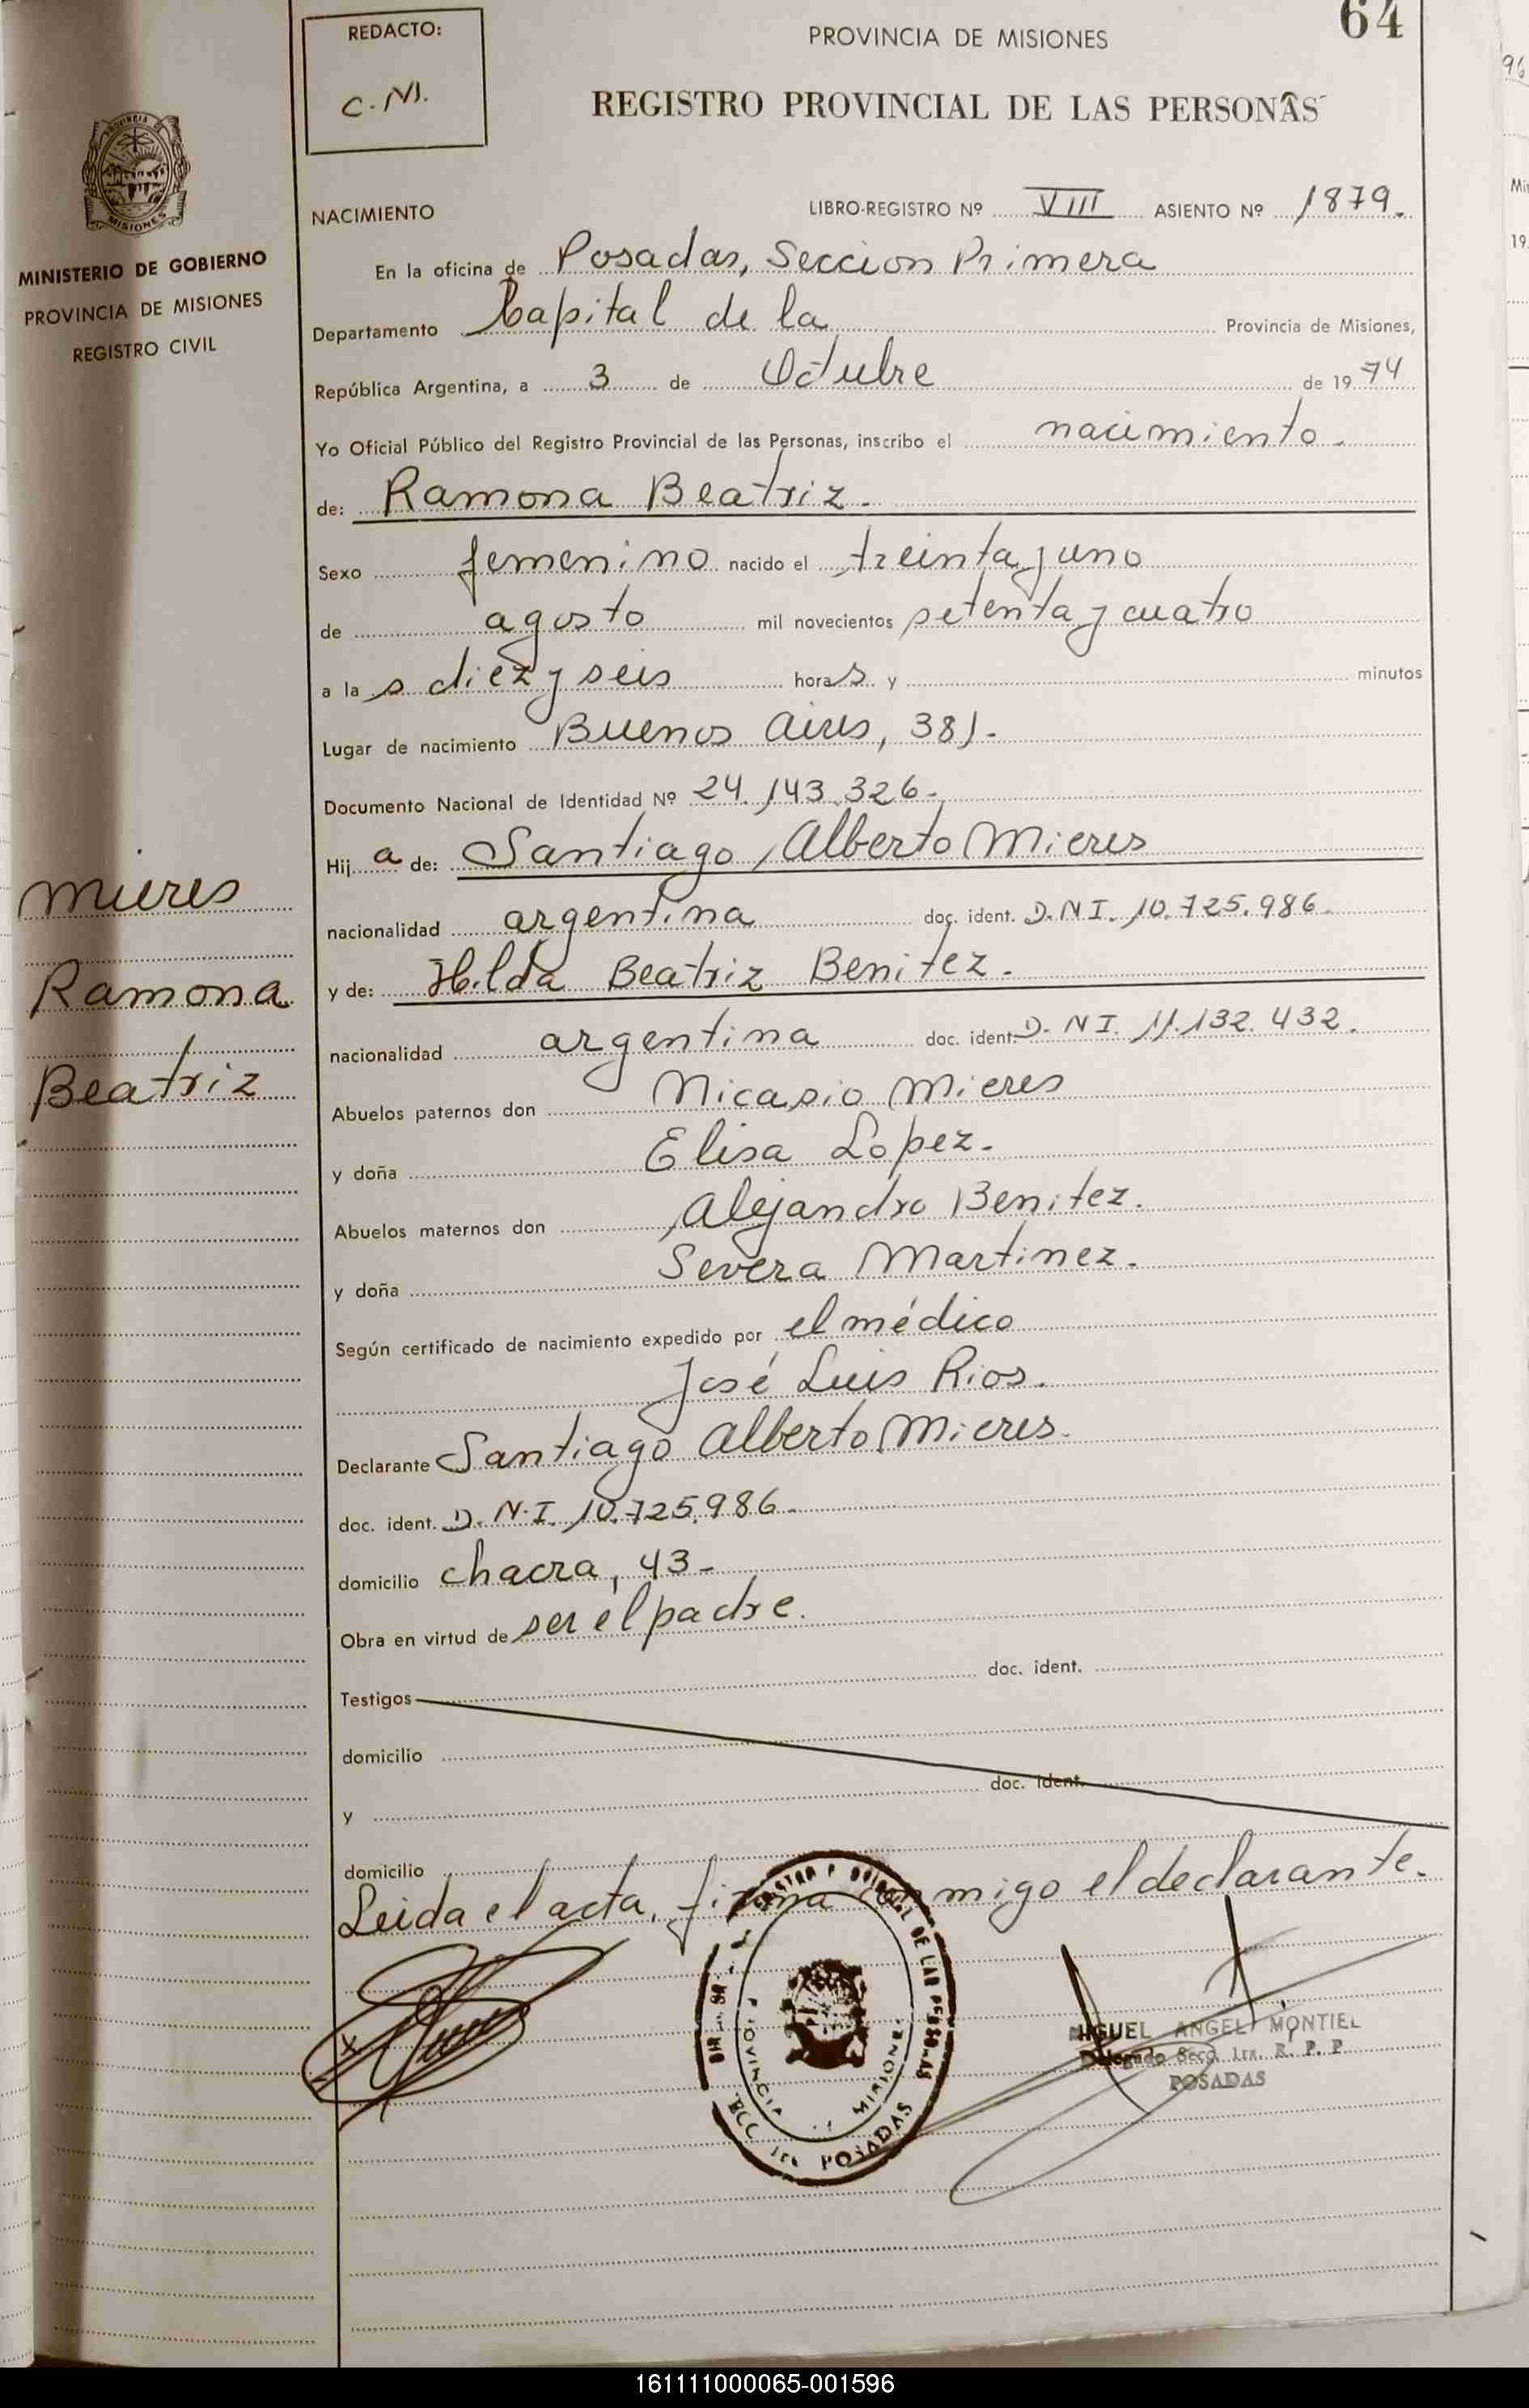 64
REDACTO:
C. M.
PROVINCIA DE MISIONES
REGISTRO PROVINCIAL DE LAS PERSONAS
PROVINCIA DE
MISIONES
MINISTERIO DE GOBIERNO
PROVINCIA DE MISIONES
REGISTRO CIVIL
NACIMIENTO LIBRO-REGISTRO Nº VIII ASIENTO Nº 1879.
En la oficina de Posadas, Seccion Primera
Departamento Capital de la Provincia de Misiones,
República Argentina, a 3 de Octubre de 1974
Yo Oficial Público del Registro Provincial de las Personas, inscribo el nacimiento.
de: Ramona Beatriz.
Sexo femenino nacido el treinta y uno
de agosto mil novecientos setenta y cuatro
a las diez y seis horas y minutos
Lugar de nacimiento Buenos Aires, 381.
Documento Nacional de Identidad Nº 24.143.326.
Hija de: Santiago Alberto Mieres
nacionalidad argentina doc. ident. D.N I. 10.725.986.
y de: Hilda Beatriz Benitez.
nacionalidad argentina doc. ident. D. N I. 11.132.432.
Abuelos paternos don Nicasio Mieres
y doña Elisa Lopez.
Abuelos maternos don Alejandro Benitez.
y doña Severa Martinez.
Según certificado de nacimiento expedido por el médico
José Luis Rios.
Declarante Santiago Alberto Mieres.
doc. ident. D. N.I. 10.725.986.
domicilio chacra, 43-
Obra en virtud de ser el padre.
doc. ident.
Testigos
domicilio
doc. ident.
y
domicilio
Leida el acta, firma conmigo el declarante.
Mieres
Ramona
Beatriz
DE LAS PERSONAS
PROVINCIA MISIONES
1ra POSADAS
MIGUEL ANGEL MONTIEL
Delegado Secc. 1ra. R. P. P.
POSADAS
161111000065-001596